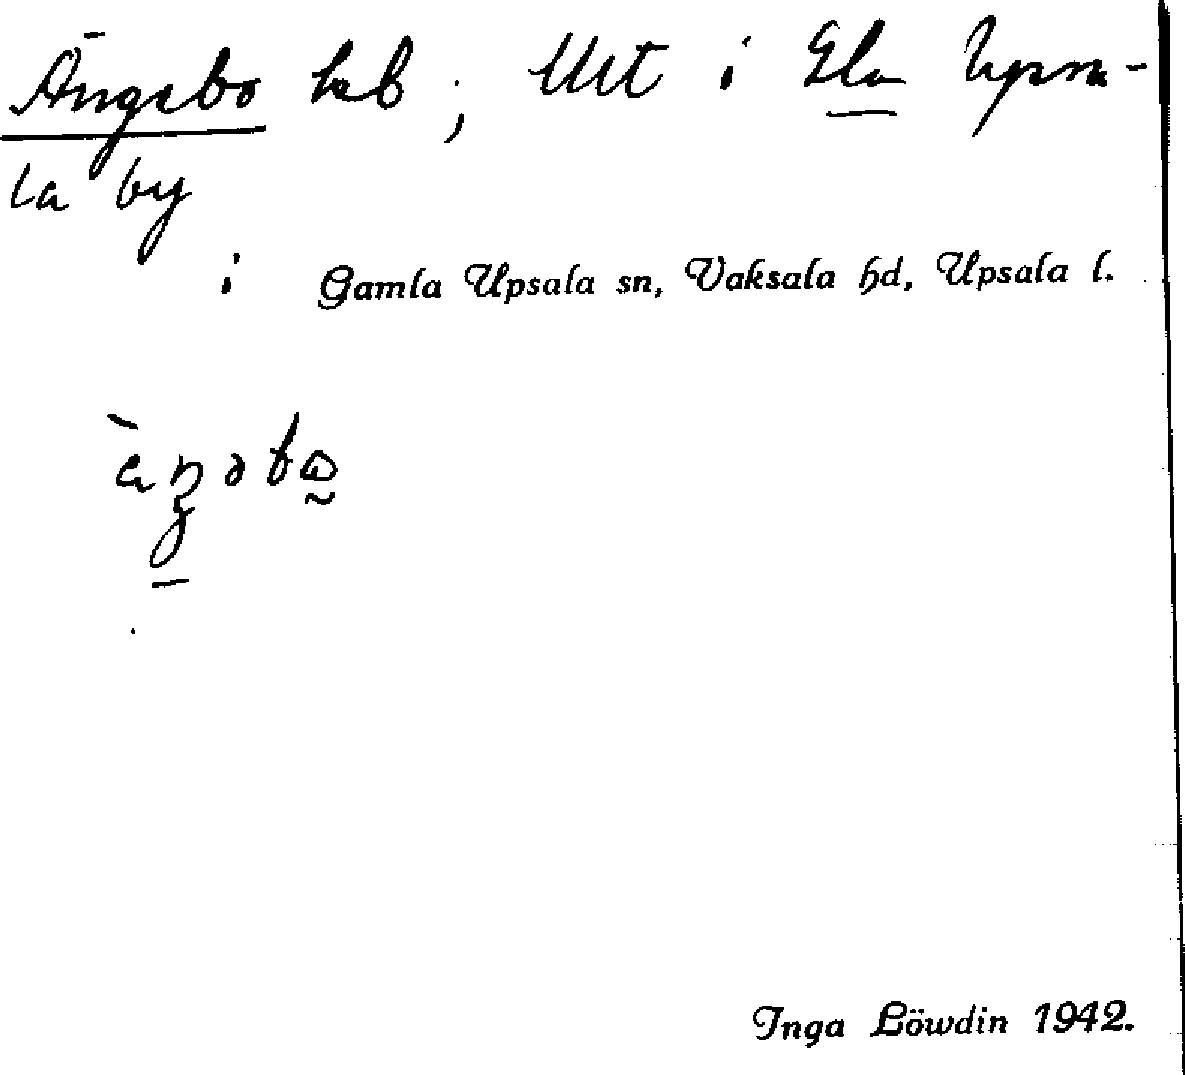 Ängebo lab; Utt i Gla Upsa-
la by
i Gamla Upsala sn, Vaksala hd, Upsala l.
Inga Löwdin 1942.